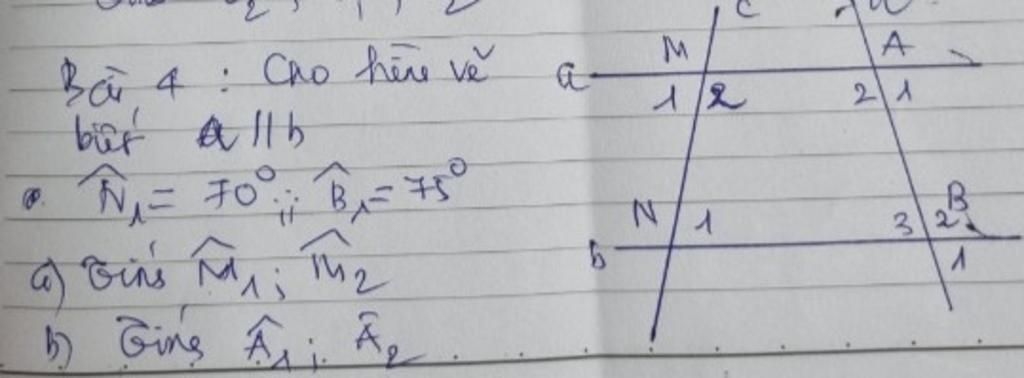 Bài 4 : Cho hình vẽ
biết a // b
N̂₁ = 70⁰ ; B̂₁ = 75⁰
a) Tính M̂₁ ; M̂₂
b) Tính Â₁ ; Â₂
c
M A
a
1 2 2 1
N 1 3 2 B
b 1